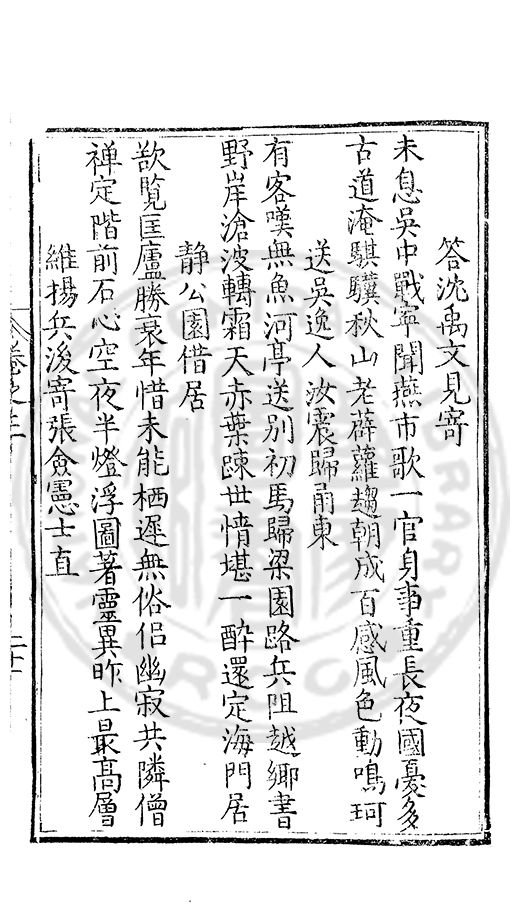 答沈禹文見寄
未息吳中戰寧聞燕市歌一官身事重長夜國憂多
古道淹騏驥秋山老薜蘿趨朝成百感風色動鳴珂
送吳逸人汝震歸甬東
有客嘆無魚河亭送別初馬歸梁園路兵阻越鄉書
野岸滄波轉霜天赤葉踈世情堪一醉還定海門居
靜公園借居
歆覽匡廬勝衰年惜未能栖遲無俗侶幽寂共隣僧
禅定階前石心空夜半燈浮圖著靈異昨上最高層
維揚兵後寄張僉憲士直
卷之三
二十一